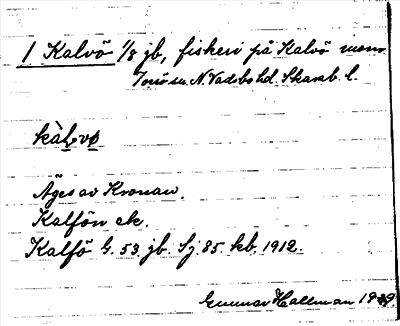 1 Kalvö 1/8 jb, fiskeri på Kalvö inom
Torsö sn. N. Vadsbo hd. Skarab. l.
kàl̥vo̥
Äges av Kronan.
Kalfön ek.
Kalfö G. 53. jb. Sj. 85. kb. 1912.
Gunnar Hallman 1939